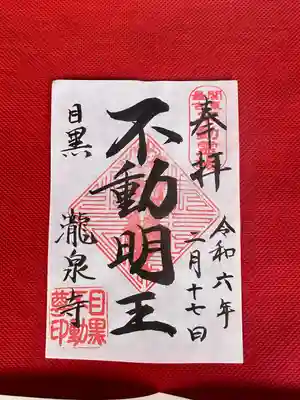 奉拝
令和六年
二月十七日
不動明王
目黒
瀧泉寺
目黒
不動
尊印